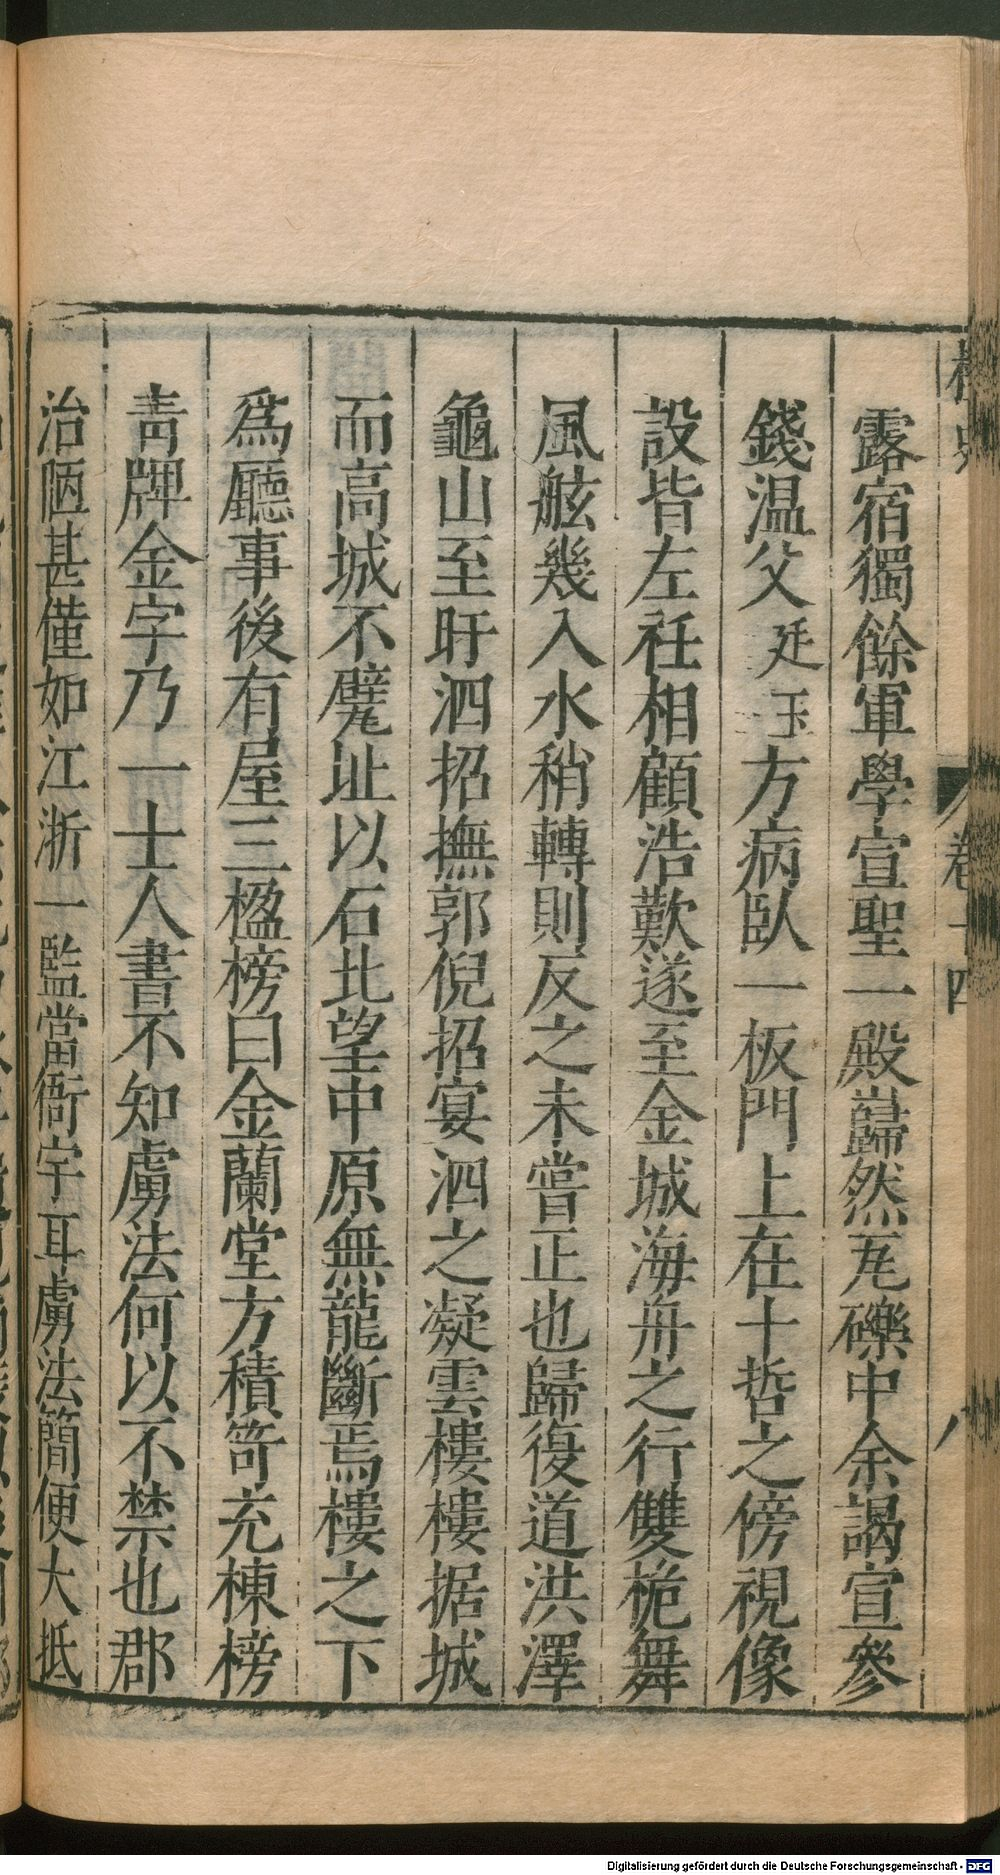 桯史 卷十四 八
露宿獨餘軍學宣聖一殿巋然瓦礫中余謁宣參
錢温父廷玉方病臥一板門上在十哲之傍視像
設皆左衽相顧浩歎遂至金城海舟之行雙桅舞
風舷幾入水稍轉則反之未嘗正也歸復道洪澤
龜山至盱泗招撫郭倪招宴泗之凝雲樓樓据城
而高城不甓址以石北望中原無龍斷焉樓之下
爲廳事後有屋三楹榜曰金蘭堂方積笴充棟榜
青牌金字乃一士人書不知虜法何以不禁也郡
治陋甚僅如江浙一監當衙宇耳虜法簡便大抵
Digitalisierung gefördert durch die Deutsche Forschungsgemeinschaft - DFG